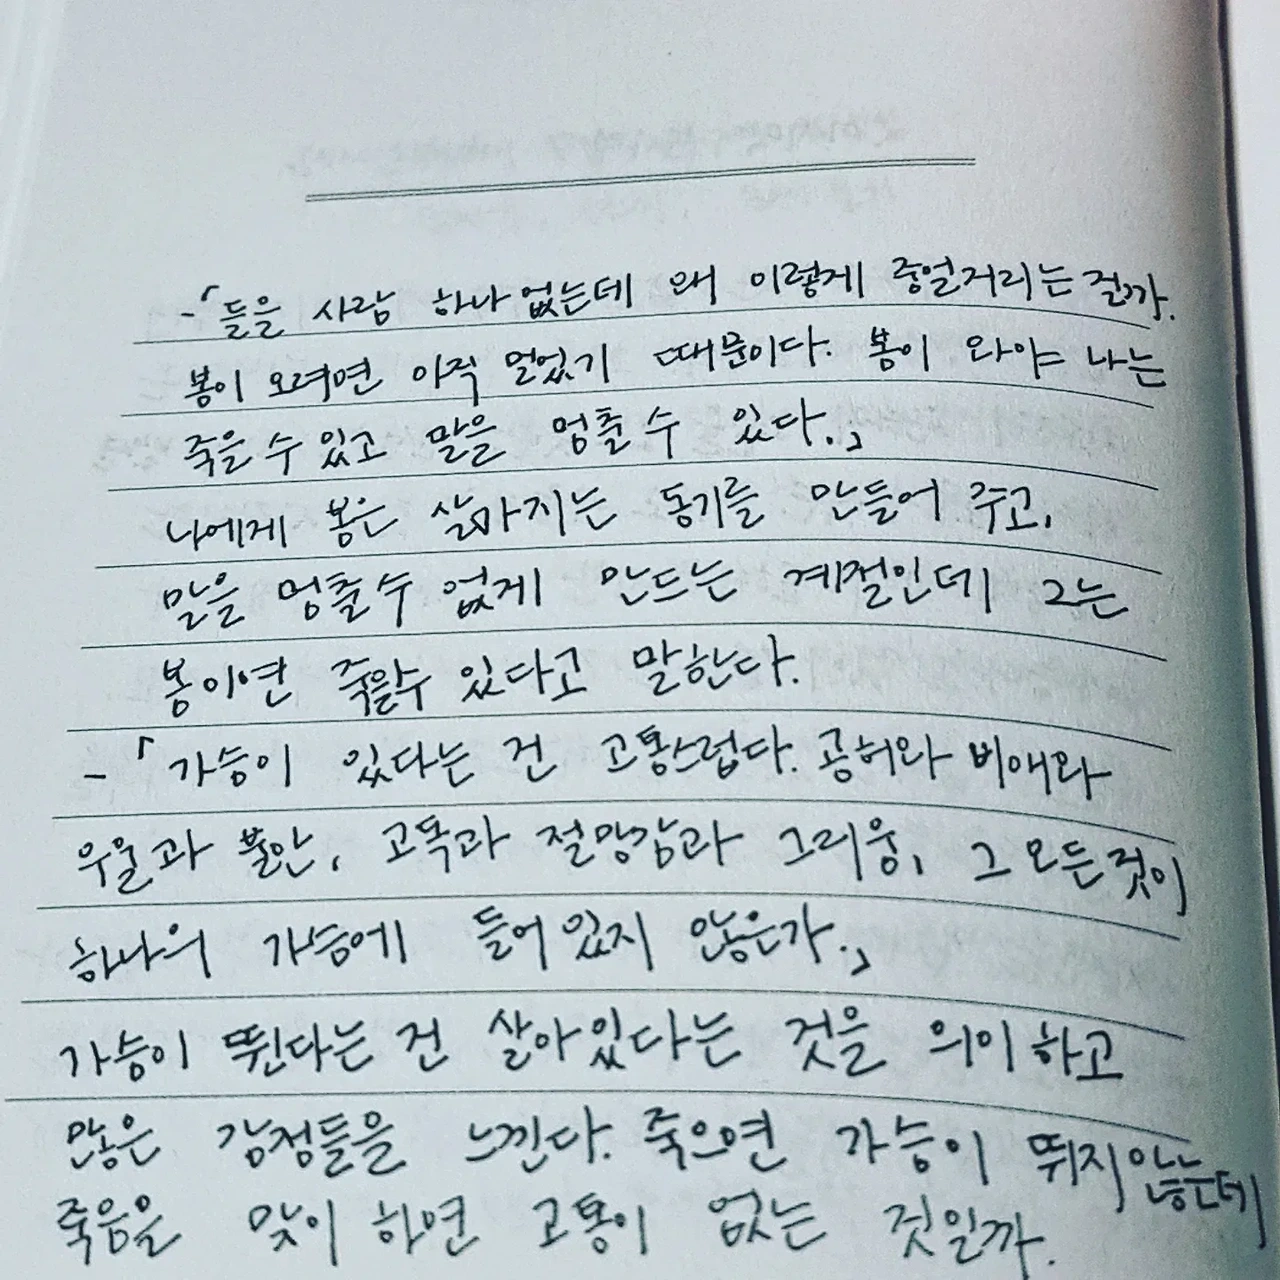 -「들을 사람 하나 없는데 왜 이렇게 중얼거리는 걸까.
봄이 오려면 아직 멀었기 때문이다. 봄이 와야 나는
죽을 수 있고 말을 멈출 수 있다.」
나에게 봄은 살아가지는 동기를 만들어 주고,
말을 멈출 수 없게 만드는 계절인데 그는
봄이면 죽을 수 있다고 말한다.
-「가슴이 있다는 건 고통스럽다. 공허와 비애와
우울과 불안, 고독과 절망감과 그리움, 그 모든 것이
하나의 가슴에 들어 있지 않은가.」
가슴이 뛴다는 건 살아있다는 것을 의미하고
많은 감정들을 느낀다. 죽으면 가슴이 뛰지 않는데
죽음을 맞이하면 고통이 없는 것일까.